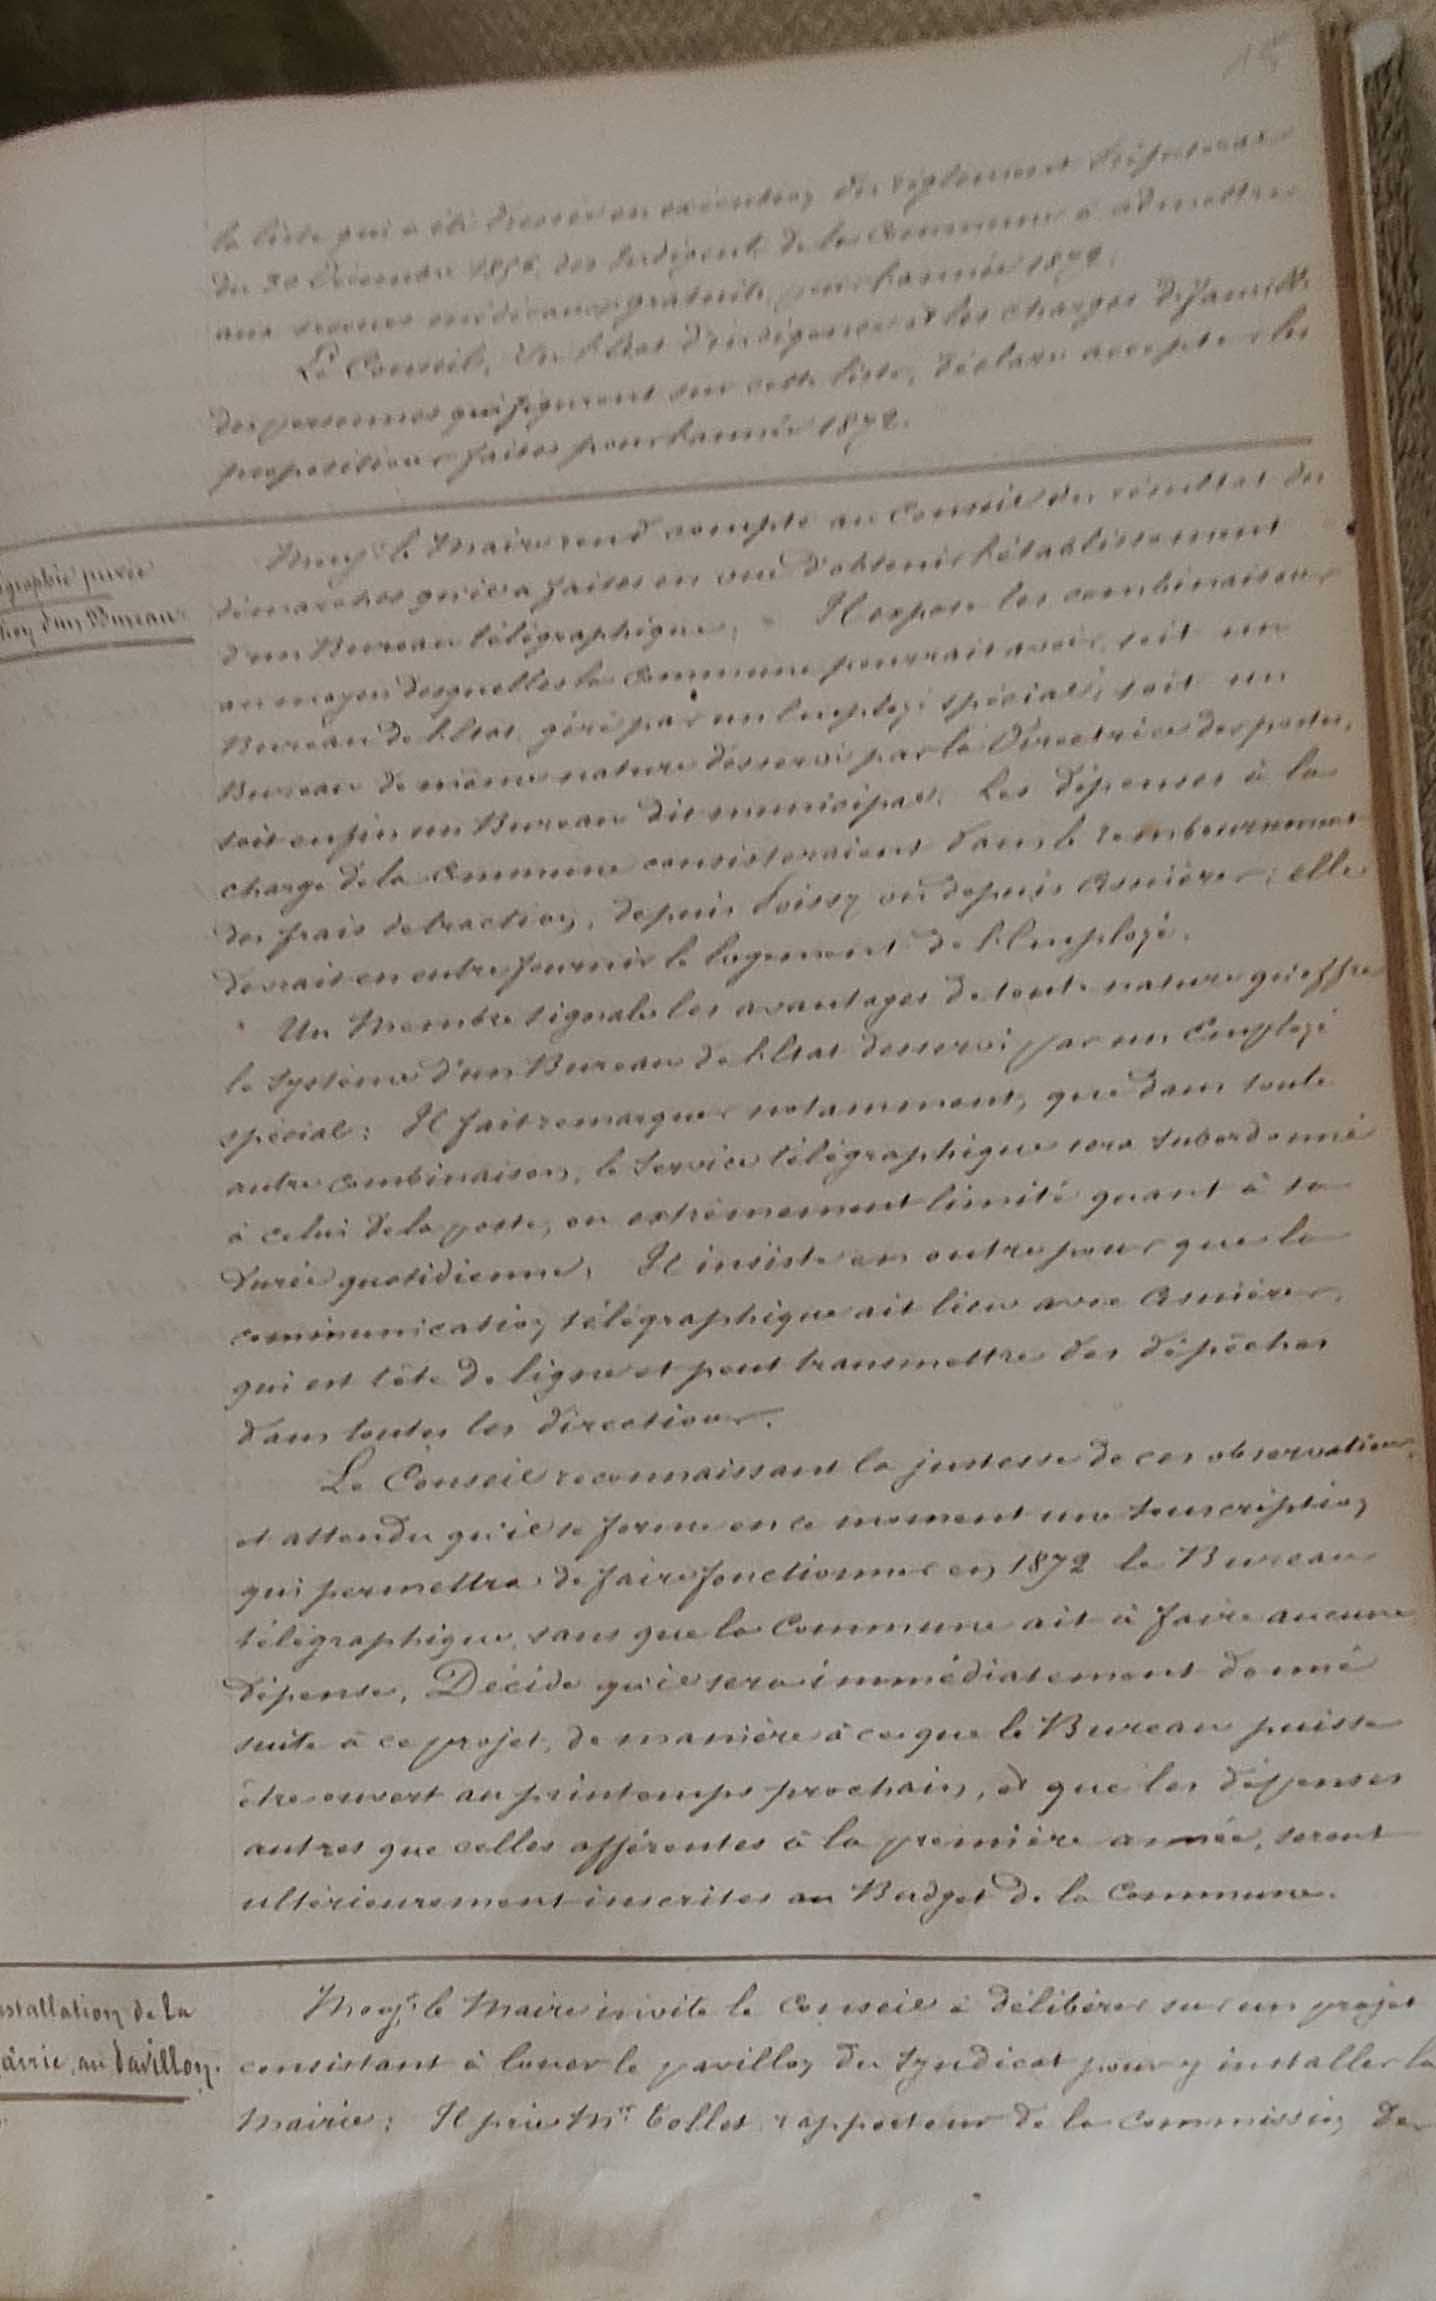 15
la liste qui a été dressée en exécution du règlement Préfectoral
du 30 Décembre 1856, des Indigents de la Commune à admettre
aux secours médicaux gratuits, pour l'année 1872.
Le Conseil, Vu l'état d'indigence et les charges de famille
des personnes qui figurent sur cette liste, déclare accepter les
propositions faites pour l'année 1872.
égraphie privée
d'un Bureau
Monsr. le Maire rend compte au Conseil du résultat des
démarches qu'il a faites en vue d'obtenir l'établissement
d'un Bureau télégraphique. Il expose les combinaisons
au moyen desquelles la Commune pourrait avoir, soit un
Bureau de l'Etat, géré par un Employé spécial, soit un
Bureau de même nature desservi par la Directrice des postes,
soit enfin un Bureau dit municipal. Les dépenses à la
charge de la Commune consisteraient dans le remboursement
des frais de traction, depuis Soisy ou depuis Asnières; elle
devrait en outre fournir le logement de l'Employé.
Un Membre signale les avantages de toute nature qu'offre
le système d'un Bureau de l'Etat desservi par un Employé
spécial: Il fait remarquer notamment, que dans toute
autre combinaison, le Service télégraphique sera subordonné
à celui de la poste, ou extrêmement limité quant à sa
durée quotidienne. Il insiste en outre pour que la
communication télégraphique ait lieu avec Asnières,
qui est tête de ligne et peut transmettre des dépêches
dans toutes les directions.
Le Conseil reconnaissant la justesse de ces observations,
et attendu qu'il se forme en ce moment une souscription
qui permettra de faire fonctionner en 1872 le Bureau
télégraphique, sans que la Commune ait à faire aucune
dépense, Décide qu'il sera immédiatement donné
suite à ce projet, de manière à ce que le Bureau puisse
être ouvert au printemps prochain, et que les dépenses
autres que celles afférentes à la première année, seront
ultérieurement inscrites au Budget de la Commune.
nstallation de la
airie, au Pavillon.
Monsr. le Maire invite le Conseil à délibérer sur un projet
consistant à louer le pavillon du Syndicat pour y installer la
Mairie: Il prie Mr. Tollet, rapporteur de la commission de